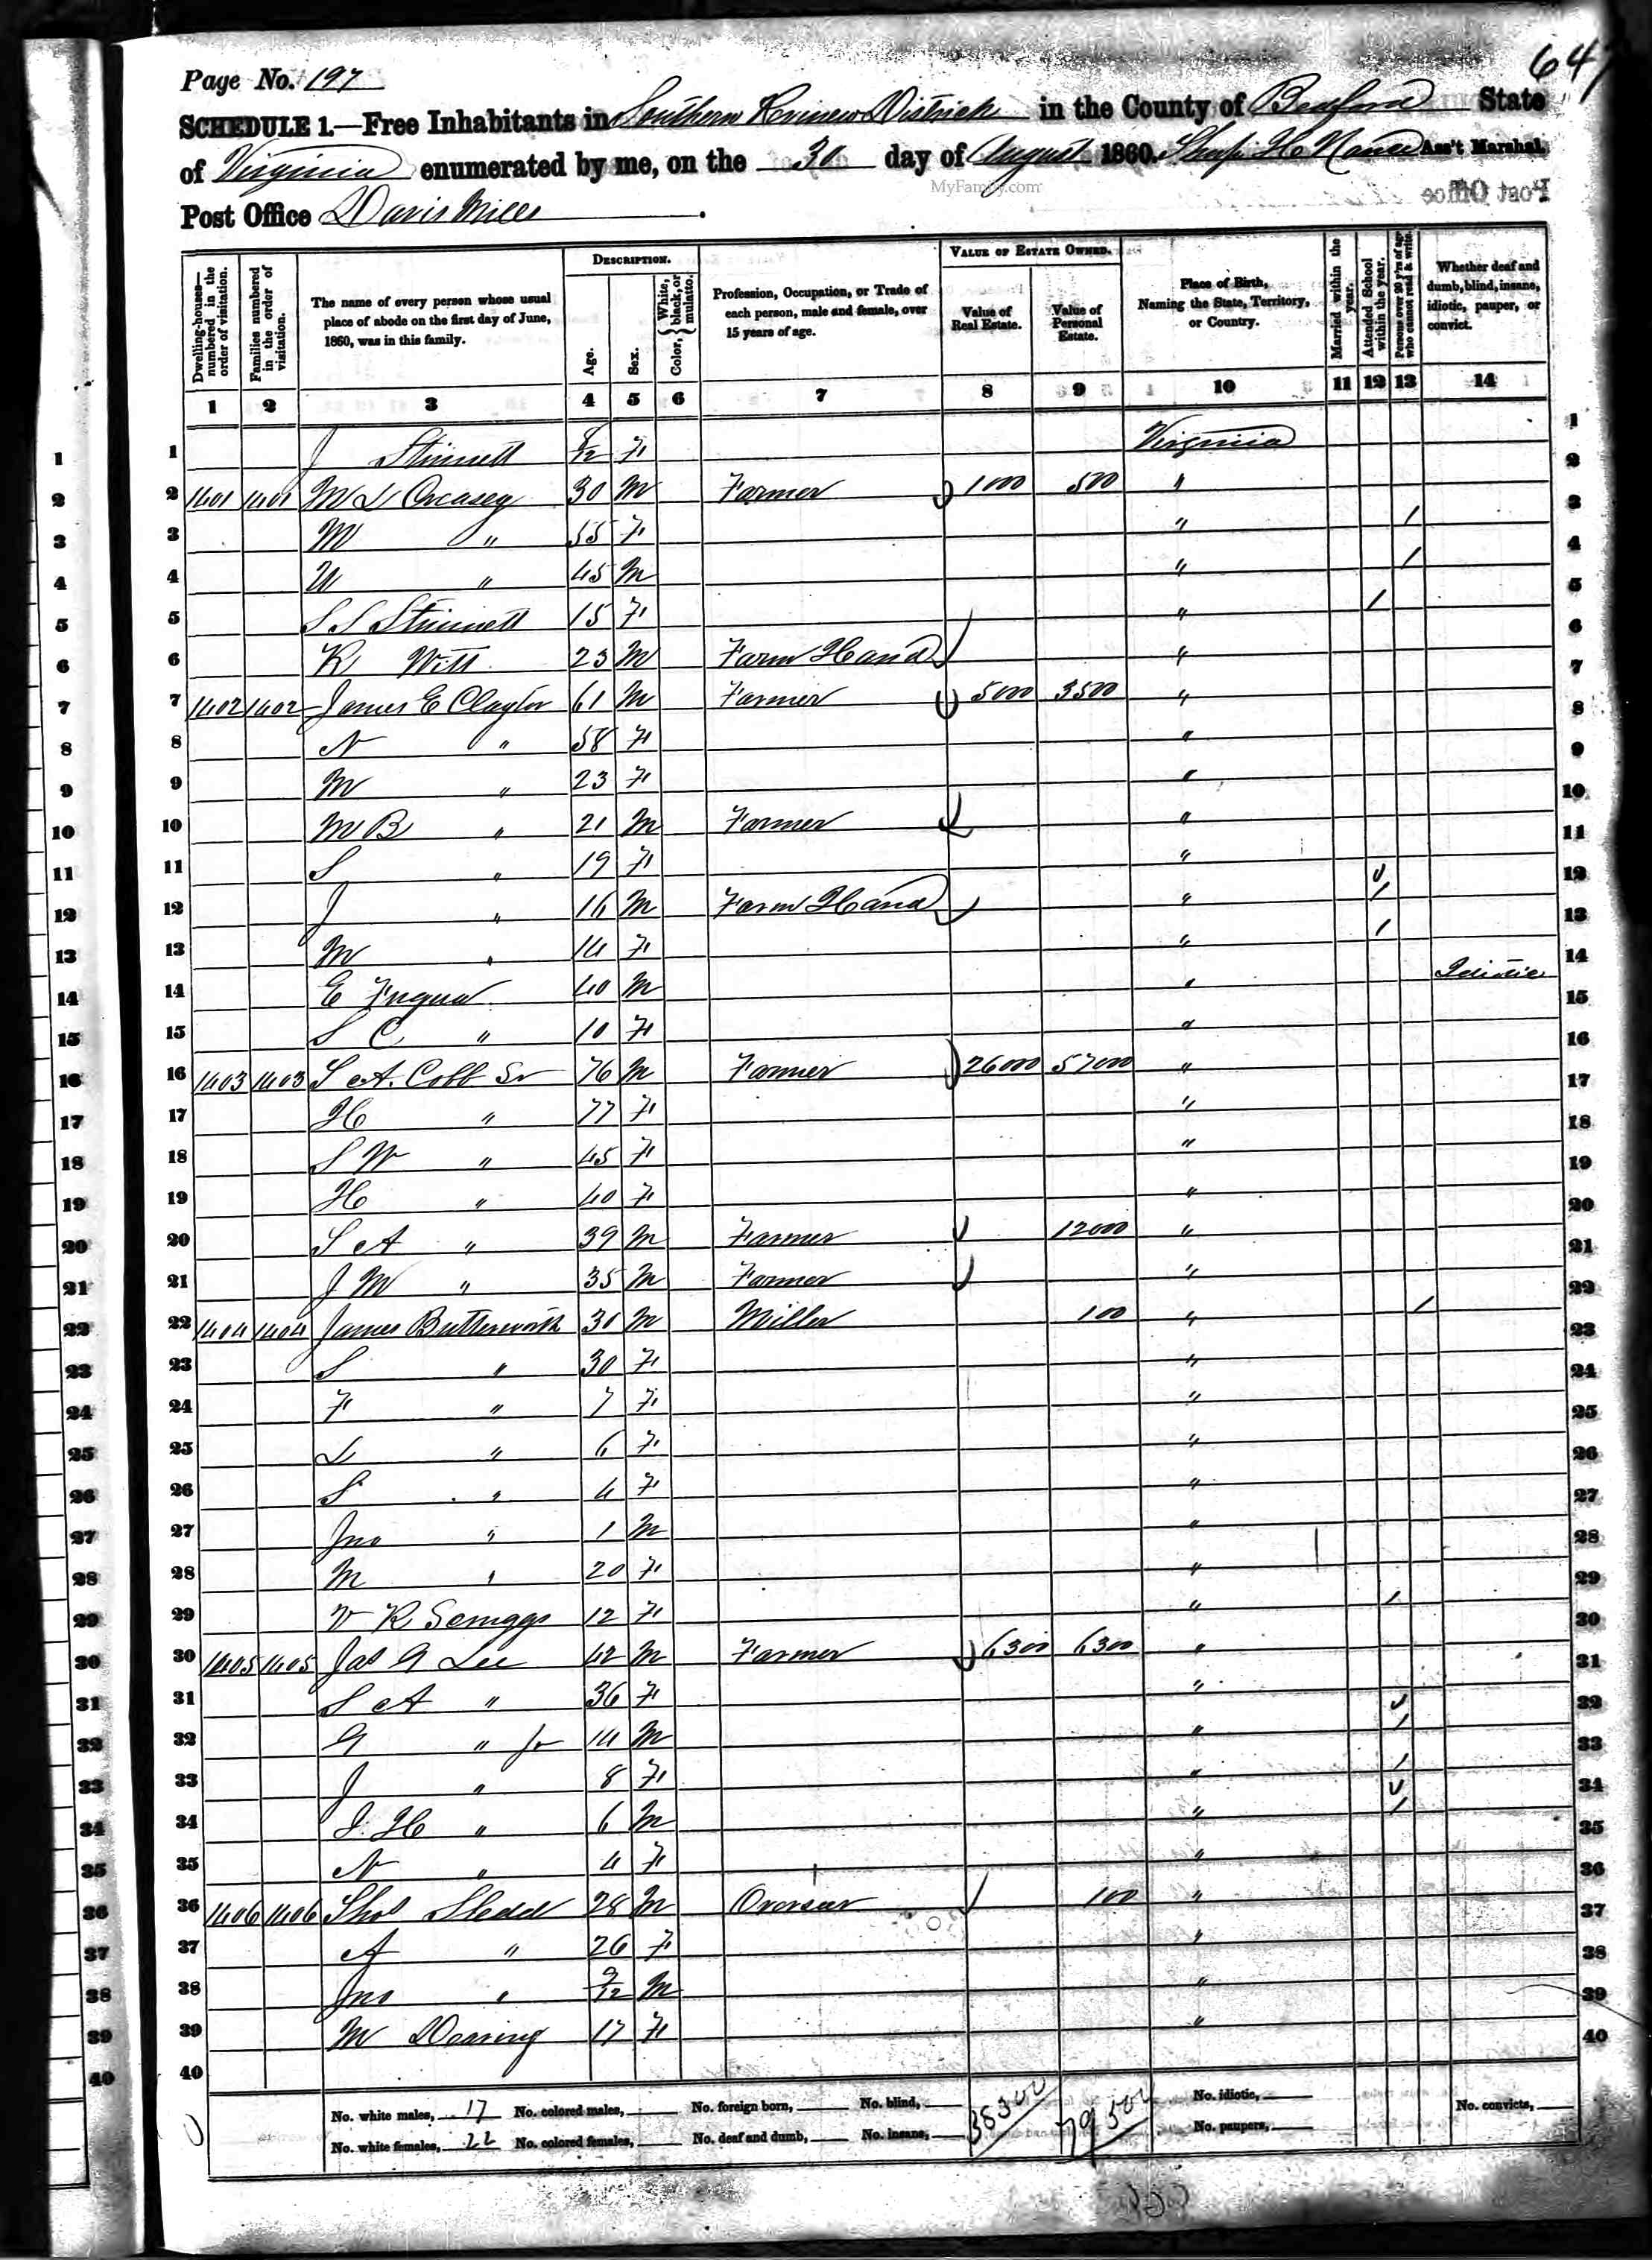 647
Page No. 197
SCHEDULE 1.—Free Inhabitants in Southern Revenue District in the County of Bedford State
of Virginia enumerated by me, on the 30 day of August 1860. Ass't Marshal.
MyFamily.com
Post Office Davis Mills
Post Office
Dwelling-houses—numbered in the order of visitation. Families numbered in the order of visitation. The name of every person whose usual place of abode on the first day of June, 1860, was in this family. DESCRIPTION. Age. Sex. Color, { White, black, or mulatto. Profession, Occupation, or Trade of each person, male and female, over 15 years of age. VALUE OF ESTATE OWNED. Value of Real Estate. Value of Personal Estate. Place of Birth, Naming the State, Territory, or Country. Married within the year. Attended School within the year. Persons over 20 y'rs of age who cannot read & write. Whether deaf and dumb, blind, insane, idiotic, pauper, or convict.
1 2 3 4 5 6 7 8 9 10 11 12 13 14
1 J Stinnett /12 F Virginia 1
2 1401 1401 M L Creasey 30 M Farmer 1000 500 " 2
3 M " 55 F " / 3
4 W " 45 M " / 4
5 S S Stinnett 15 F " / 5
6 K Witt 23 M Farm Hand " 6
7 1402 1402 James E Claytor 61 M Farmer 5000 3500 " 7
8 N " 58 F " 8
9 M " 23 F " 9
10 M B " 21 M Farmer " 10
11 S " 19 F " 11
12 J " 16 M Farm Hand " / 12
13 M " 14 F " / 13
14 E Fuqua 40 M " Idiotic 14
15 S C " 10 F " 15
16 1403 1403 S A. Cobb Sr 76 M Farmer 26000 57000 " 16
17 H " 77 F " 17
18 S W " 45 F " 18
19 H " 40 F " 19
20 S A " 39 M Farmer 12000 " 20
21 J M " 35 M Farmer " 21
22 1404 1404 James Butterworth 30 M Miller 100 " / 22
23 S " 30 F " 23
24 F " 7 F " 24
25 L " 6 F " 25
26 S " 4 F " 26
27 Jno " 1 M " 27
28 M " 20 F " 28
29 V K Scruggs 12 F " / 29
30 1405 1405 Jas G Lee 42 M Farmer 6300 6300 " 30
31 S A " 36 F " 31
32 G " Jr 14 M " / 32
33 J " 8 F " / 33
34 J. H " 6 M " / 34
35 N " 4 F " 35
36 1406 1406 Thos Sledd 28 M Overseer 100 " 36
37 A " 26 F " 37
38 Jno " 9/12 M " 38
39 M Dearing 17 F " 39
40 40
No. white males, 17 No. colored males, No. foreign born, No. blind, 38300 79500 No. idiotic, No. convicts,
No. white females, 22 No. colored females, No. deaf and dumb, No. insane, No. paupers,